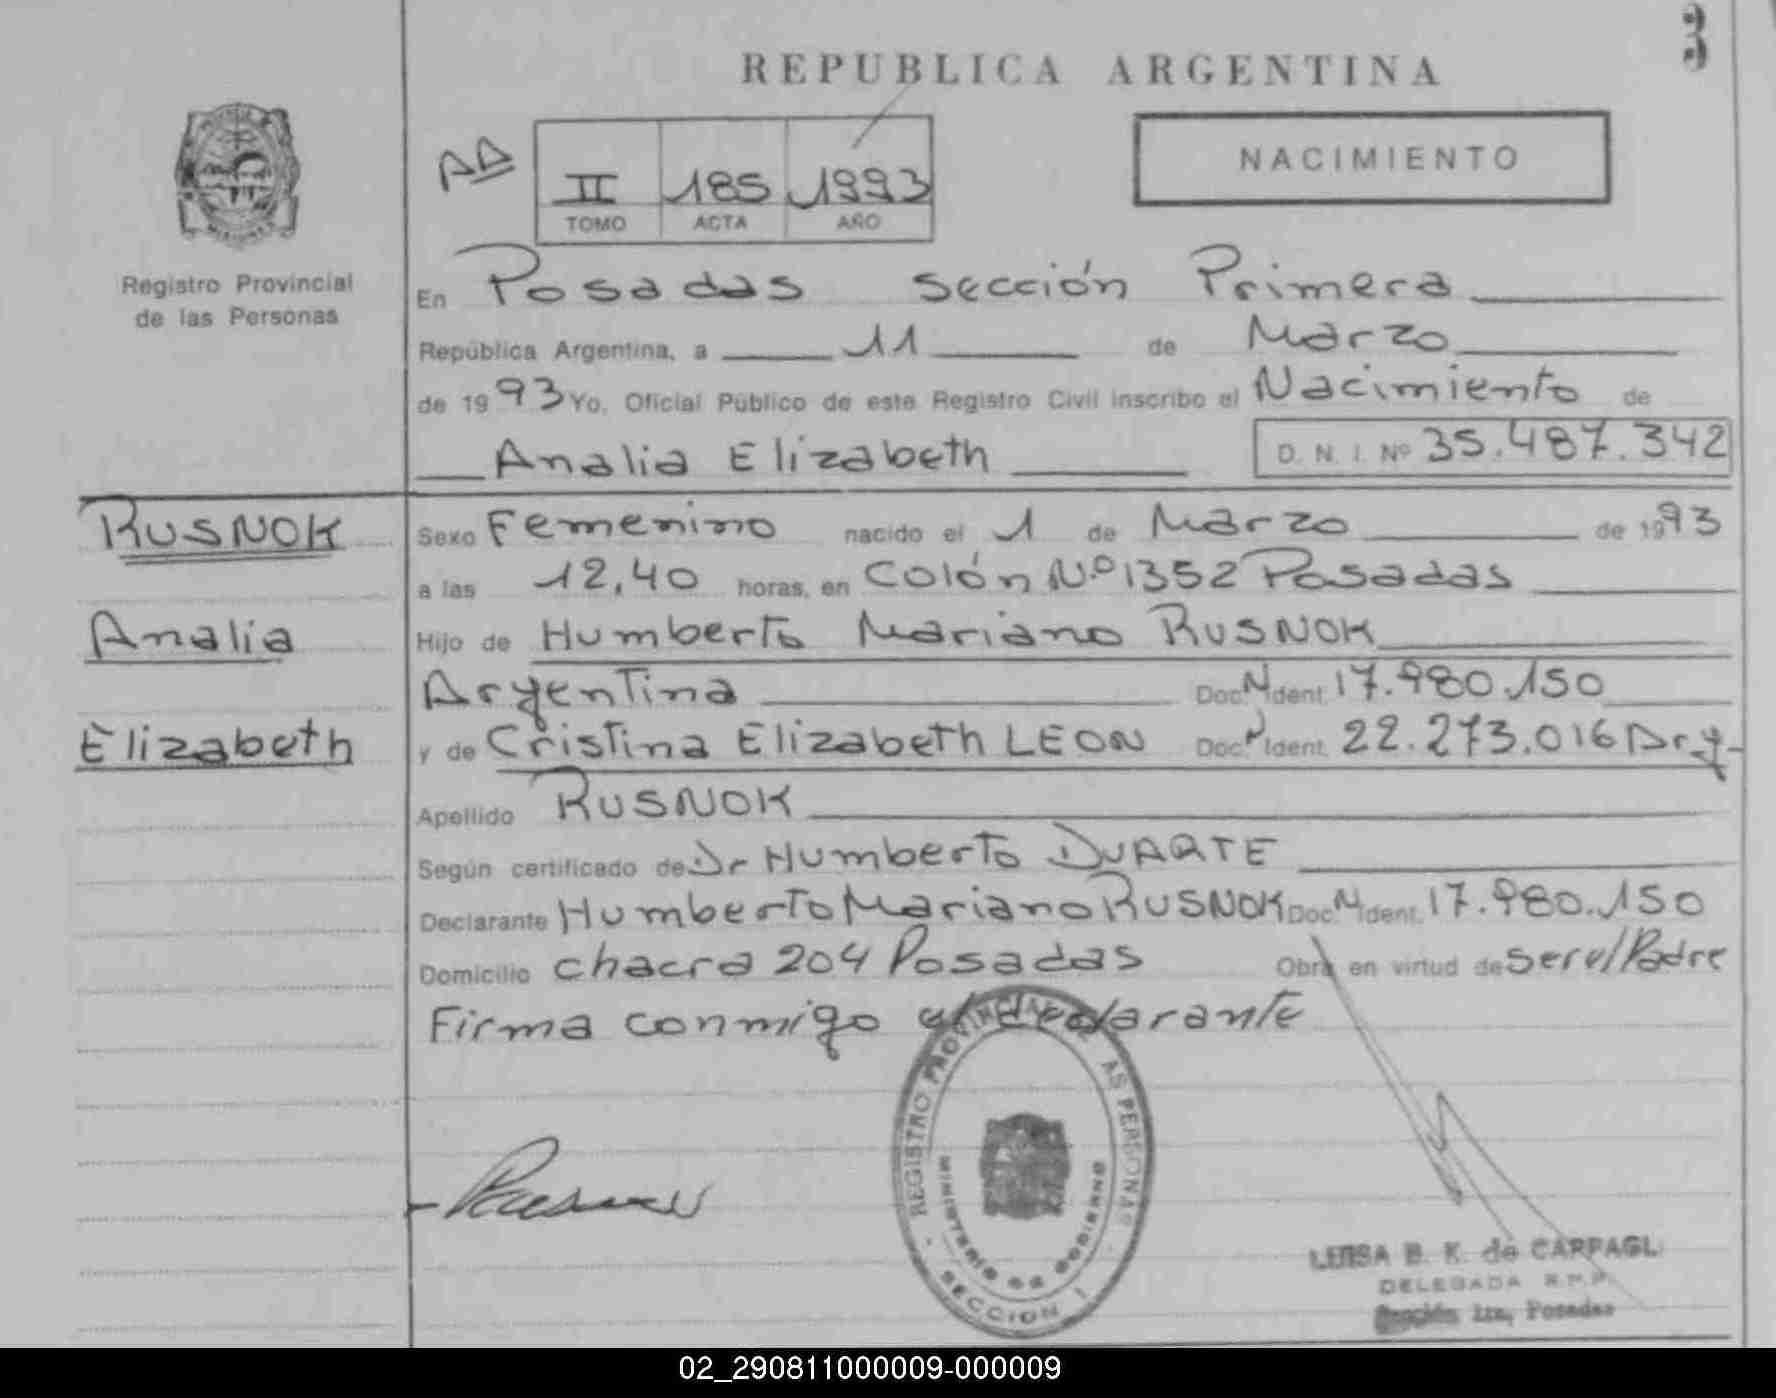 33
REPUBLICA ARGENTINA
NACIMIENTO
AD
II 185 1993
TOMO ACTA AÑO
Registro Provincial
de las Personas
En Posadas sección Primera
República Argentina, a 11 de Marzo
de 1993 Yo, Oficial Público de este Registro Civil inscribo el Nacimiento de
Analia Elizabeth D. N. I. Nº 35.487.342
RUSNOK
Analia
Elizabeth
Sexo Femenino nacido el 1 de Marzo de 1993
a las 12,40 horas, en Colón N.º 1352 Posadas
Hijo de Humberto Mariano RUSNOK
Argentina Doc. N Ident. 17.980.150
y de Cristina Elizabeth LEON Doc. N Ident. 22.273.016 Arg-
Apellido RUSNOK
Según certificado de Dr Humberto DUARTE
Declarante Humberto Mariano RUSNOK Doc. N Ident. 17.980.150
Domicilio chacra 204 Posadas Obra en virtud de ser el Padre
Firma conmigo el declarante
REGISTRO PROVINCIAL DE LAS PERSONAS
MINISTERIO DE GOBIERNO
SECCION 1
LUISA B. K. de CARPAGL
DELEGADA R.P.P.
Sección 1ra, Posadas
02_290811000009-000009